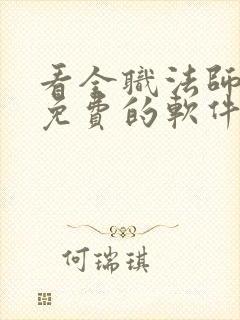 看全職法師
免費的軟件
何瑞琪